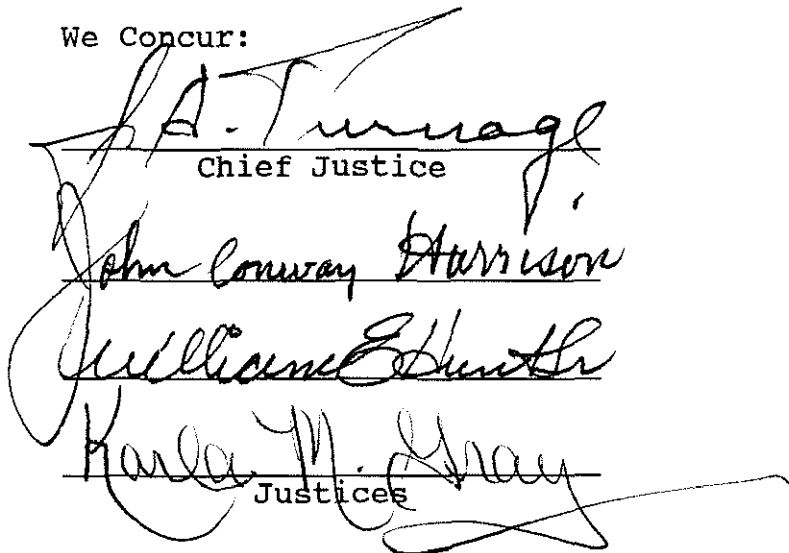 We Concur:
J. A. Turnage
Chief Justice
John Conway Harrison
William E Hunter
Karla M. Gray
Justices